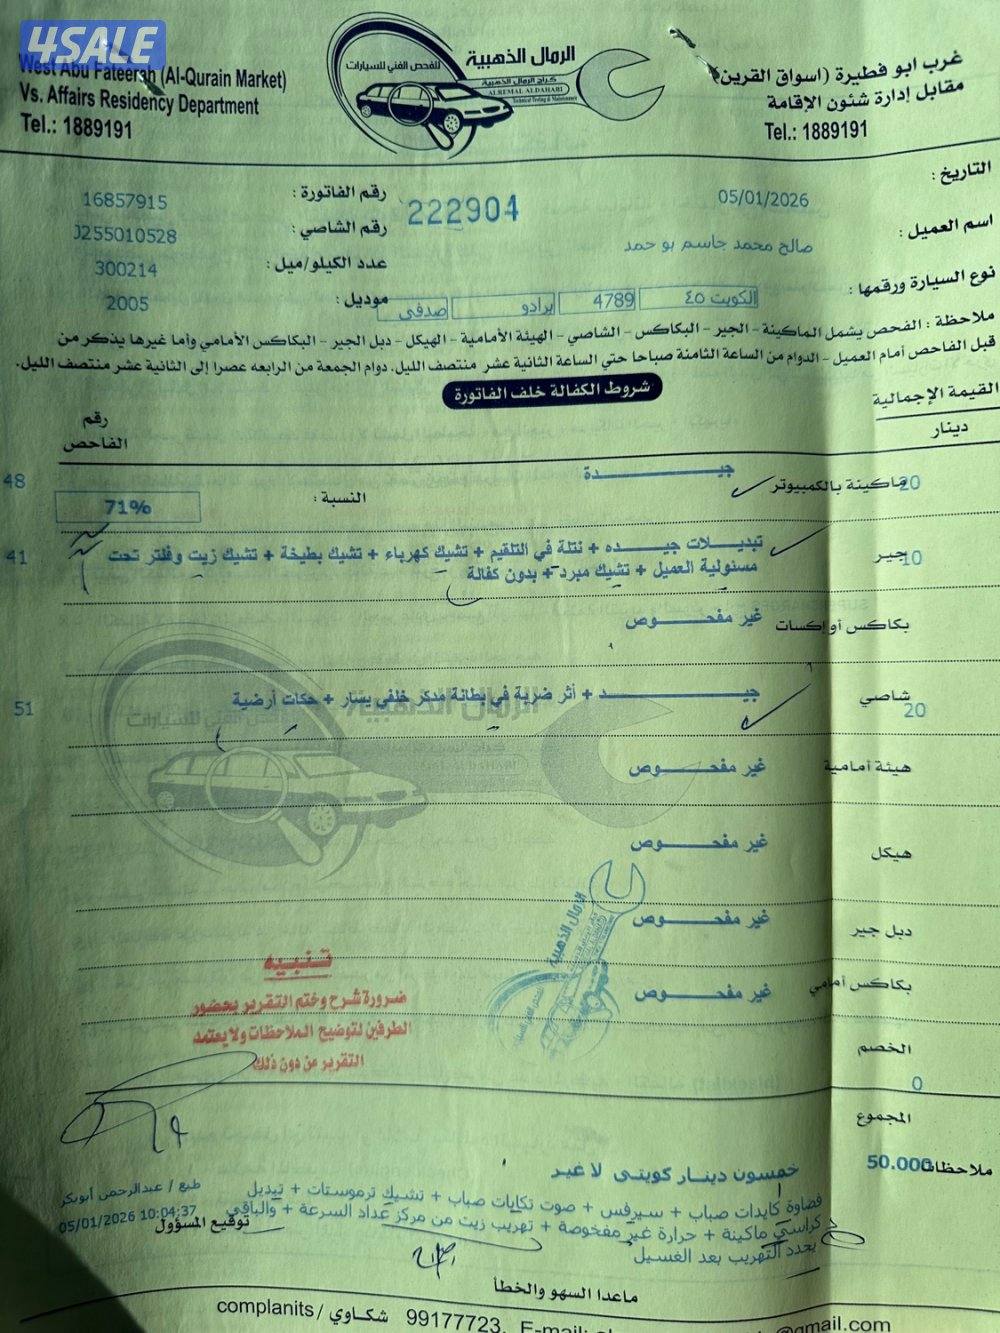 4SALE
West Abu Fateerah (Al-Qurain Market)
Vs. Affairs Residency Department
Tel.: 1889191
الرمال الذهبية
للفحص الفني للسيارات
كراج الرمال الذهبية
ALREMAL ALDAHABI
Technical Testing & Maintenance
غرب ابو فطيرة (اسواق القرين)
مقابل إدارة شئون الإقامة
Tel.: 1889191
التاريخ : 05/01/2026
222904
رقم الفاتورة : 16857915
اسم العميل : صالح محمد جاسم بو حمد
رقم الشاصي : J255010528
عدد الكيلو/ميل : 300214
نوع السيارة ورقمها : الكويت ٤٥ 4789 برادو صدفى
موديل : 2005
ملاحظة : الفحص يشمل الماكينة - الجير - البكاكس - الشاصي - الهيئة الأمامية - الهيكل - دبل الجير - البكاكس الأمامي وأما غيرها يذكر من
قبل الفاحص أمام العميل - الدوام من الساعة الثامنة صباحا حتي الساعة الثانية عشر منتصف الليل. دوام الجمعة من الرابعه عصرا إلى الثانية عشر منتصف الليل.
شروط الكفالة خلف الفاتورة
القيمة الإجمالية
دينار
رقم
الفاحص
20 ماكينة بالكمبيوتر جيـــــدة 48
النسبة : 71%
10 جير تبديـلات جيـــده + نتلة في التلقيم + تشيك كهرباء + تشيك بطيخة + تشيك زيت وفلتر تحت 41
مسئولية العميل + تشيك مبرد + بدون كفالة
بكاكس أو إكسات غير مفحـــوص
شاصي 20 جيـــــد + أثر ضربة في بطانة مدكر خلفي يسار + حكات أرضية 51
هيئة أمامية غير مفحـــوص
هيكل غير مفحـــوص
دبل جير غير مفحـــوص
بكاكس أمامي غير مفحـــوص
الرمال الذهبية
تنبيه
ضرورة شرح وختم التقرير بحضور
الطرفين لتوضيح الملاحظات ولا يعتمد
التقرير من دون ذلك
الخصم 0
المجموع 50.000
خمسون دينار كويتى لا غير
ملاحظات
فضاوة كايدات صباب + سيرفس + صوت تكايات صباب + تشيك ترموستات + تبديل
كراسي ماكينة + حرارة غير مفحوصة + تهريب زيت من مركز عداد السرعة + والباقي
يحدد التهريب بعد الغسيل
طبع / عبدالرحمن أبوبكر
05/01/2026 10:04:37
توقيع المسؤول
ماعدا السهو والخطأ
complanits / شكاوي 99177723, E-mail:
@gmail.com